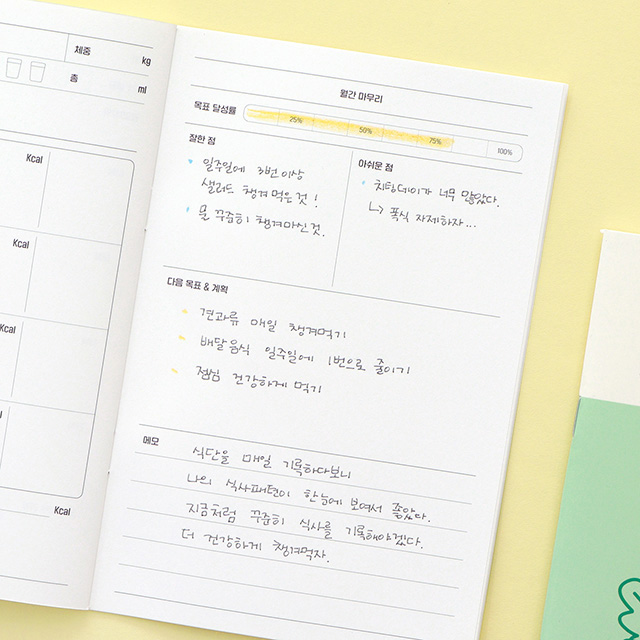 체중
kg
총
ml
Kcal
Kcal
Kcal
Kcal
Kcal
월간 마무리
목표 달성률
25%
50%
75%
100%
잘한 점
일주일에 3번 이상
샐러드 챙겨 먹은 것!
물 꾸준히 챙겨마신 것.
아쉬운 점
치팅데이가 너무 많았다.
↳ 폭식 자제하자...
다음 목표 & 계획
견과류 매일 챙겨먹기
배달음식 일주일에 1번으로 줄이기
점심 건강하게 먹기
메모
식단을 매일 기록하다보니
나의 식사패턴이 한눈에 보여서 좋았다.
지금처럼 꾸준히 식사를 기록해야겠다.
더 건강하게 챙겨먹자.